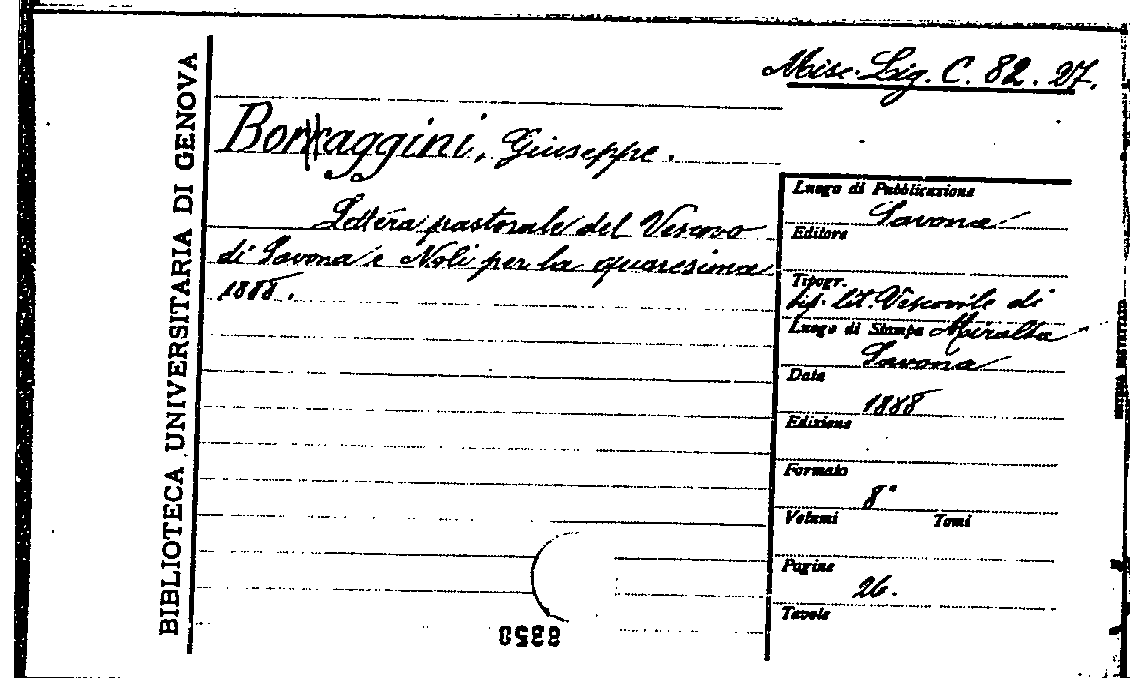 BIBLIOTECA UNIVERSITARIA DI GENOVA
Misc. Lig. C. 82. 27.
Borraggini, Giuseppe.
Lettera pastorale del Vescovo
di Savona e Noli per la quaresima
1888.
Luogo di Pubblicazione
Savona
Editore
Tipogr.
tip. lit. Vescovile di
Luogo di Stampa Miralta
Savona
Data
1888
Edizione
Formato
8°
Volumi Tomi
Pagine
26.
Tavole